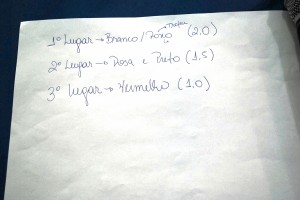 1º Lugar → Branco / Roxo (2.0)
2º Lugar → Rosa e Preto (1.5)
3º Lugar → Vermelho (1.0)